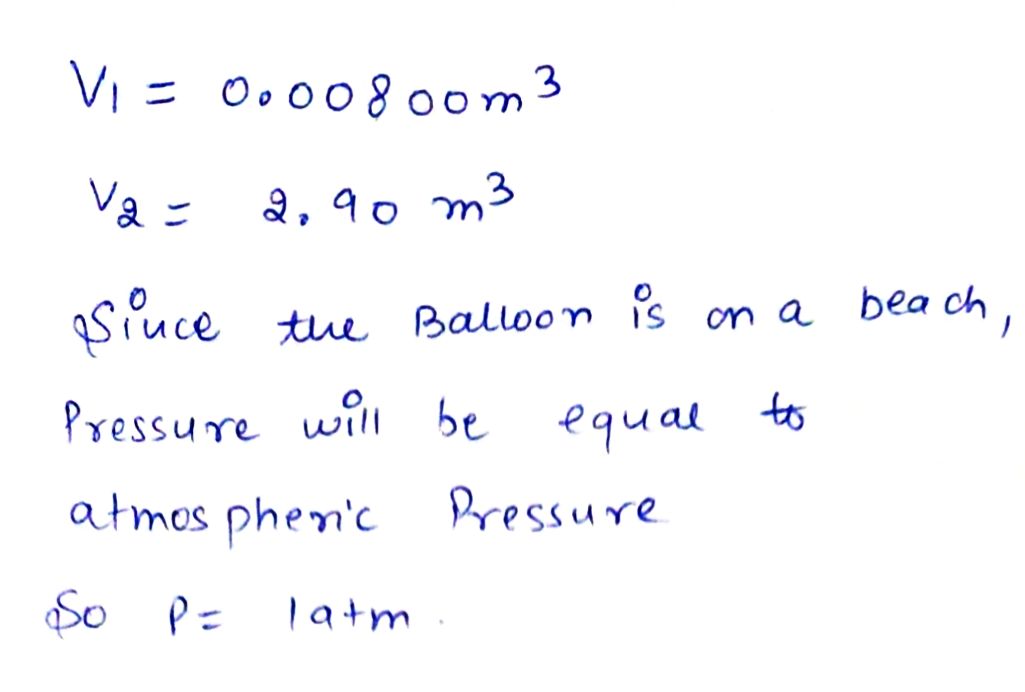 V1 = 0.00800m³
V2 = 2.90 m³
Since the Balloon is on a beach,
Pressure will be equal to
atmospheric Pressure
So P = 1atm.